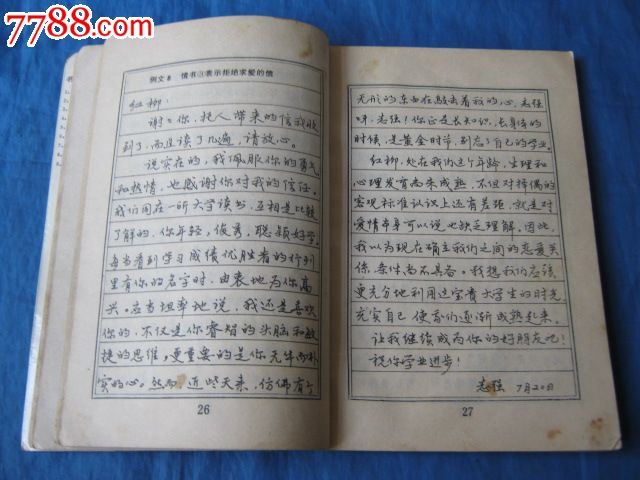 7788.com
中国收藏热线
例文8 情书③表示拒绝求爱的情
红柳:
谢谢你,托人带来的信我收
到了,而且读了几遍,请放心。
说实在的,我佩服你的勇气
和热情,也感谢你对我的信任。
我们同在一所大学读书,互相是比较
了解的,你年轻,俊秀,聪颖好学,
每当看到学习成绩优胜者的行列
里有你的名字时,由衷地为你高
兴。应当坦率地说,我还是喜欢
你的,不仅是你睿智的头脑和敏
捷的思维,更重要的是你无华而朴
实的心。然而,近些天来,仿佛有个
26
无形的东西在敲击着我的心,志强
呀,志强!你正是长知识,长身体的
时候,是黄金时节,别忘了自己的学业。
红柳,处在我们这个年龄,生理和
心理发育尚未成熟,不但对择偶的
客观标准认识上还有差距,就是对
爱情本身可以说也缺乏理解。因此,
我以为现在确立我们之间的恋爱关
系,条件尚不具备。我想我们应该
更充分地利用这宝贵大学生的时光
充实自己,使我们逐渐成熟起来。
让我继续成为你的好朋友吧!
祝你学业进步!
志强 7月20日
27